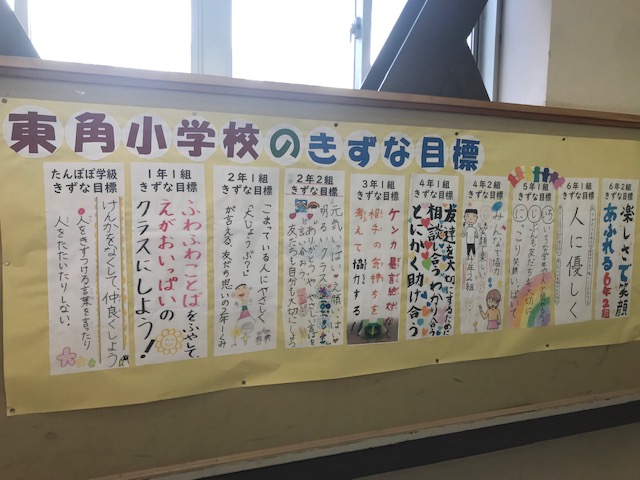 東角小学校のきずな目標
たんぽぽ学級
きずな目標
けんかをなくして、仲良くしよう
人をきずつける言葉を言ったり
人をたたいたりしない。
1年1組
きずな目標
ふわふわことばをふやして、
えがおいっぱいの
クラスにしよう!
2年1組
きずな目標
こまっている人にやさしく
「大じょうぶ?」と
が言える、友だち思いの2年1くみ
2年2組
きずな目標
元気いっぱい、え顔いっぱい
明るいクラス
ありがとうや、やさしい言ばを
言い合おう。
友だちも自分も大切にしよう
3年1組
きずな目標
ケンカ暴言絶対
相手の気持ちを
考えて協力する
4年1組
きずな目標
友達を大切にするために
相談し合う、わかり合う
とにかく助け合う
4年2組
きずな目標
みんなで協力
笑顔で楽しい
4年2組
5年1組
きずな目標
6年1組
きずな目標
人に優しく
6年2組
きずな目標
楽しさで笑顔
あふれる6年2組